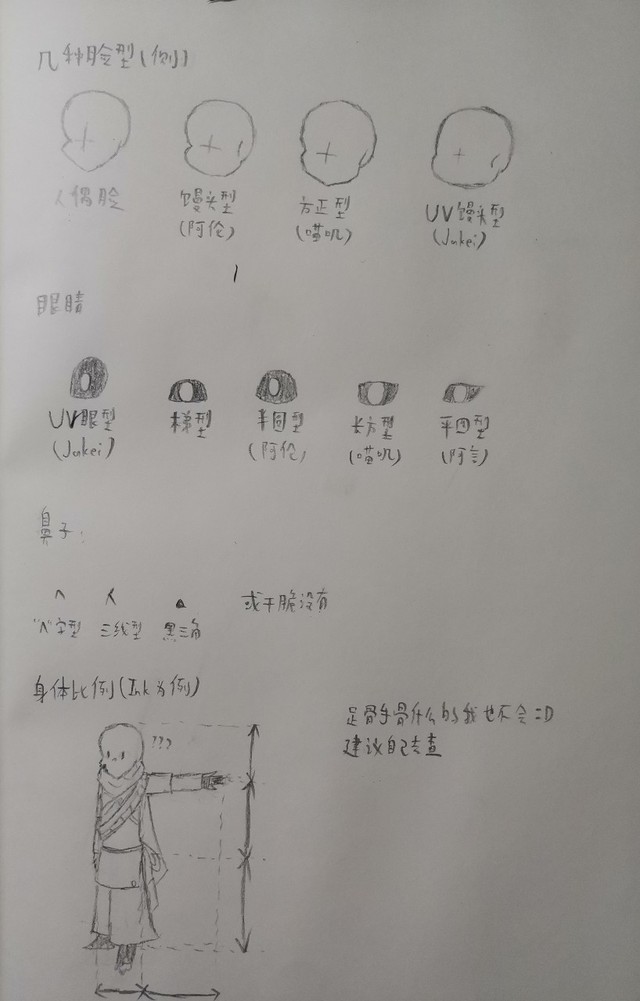 几种脸型(侧)
人偶脸
馒头型
(阿伦)
方正型
(喵叽)
UV馒头型
(Jakei)
眼睛
UV眼型
(Jakei)
梯型
半圆型
(阿伦)
长方型
(喵叽)
平四型
(阿言)
鼻子:
"^"字型
三线型
黑三角
或干脆没有
身体比例(Ink为例)
???
足骨手骨什么的我也不会=D
建议自己去查